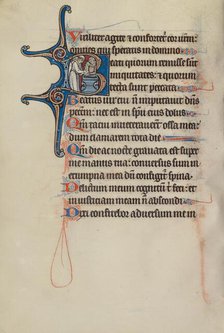 Viriliter agite et confortet cor uem:
omnes qui speratis in domino
Beati quorum remisse sunt
iniquitates: et quorum
tecta sunt peccata.
Beatus uir cui n imputauit dns
peccm: nec est in spu eius dolus
Qm tacui inueterauert ossa mea:
dum clamarem tota die.
Qm die ac nocte grauata est super
me manus tua: conuersus sum in
erumpna mea dum configitur spina.
Delictum meum cognitum t feci: et
iniusticiam meam n abscondi
Dixi confitebor aduersum me in